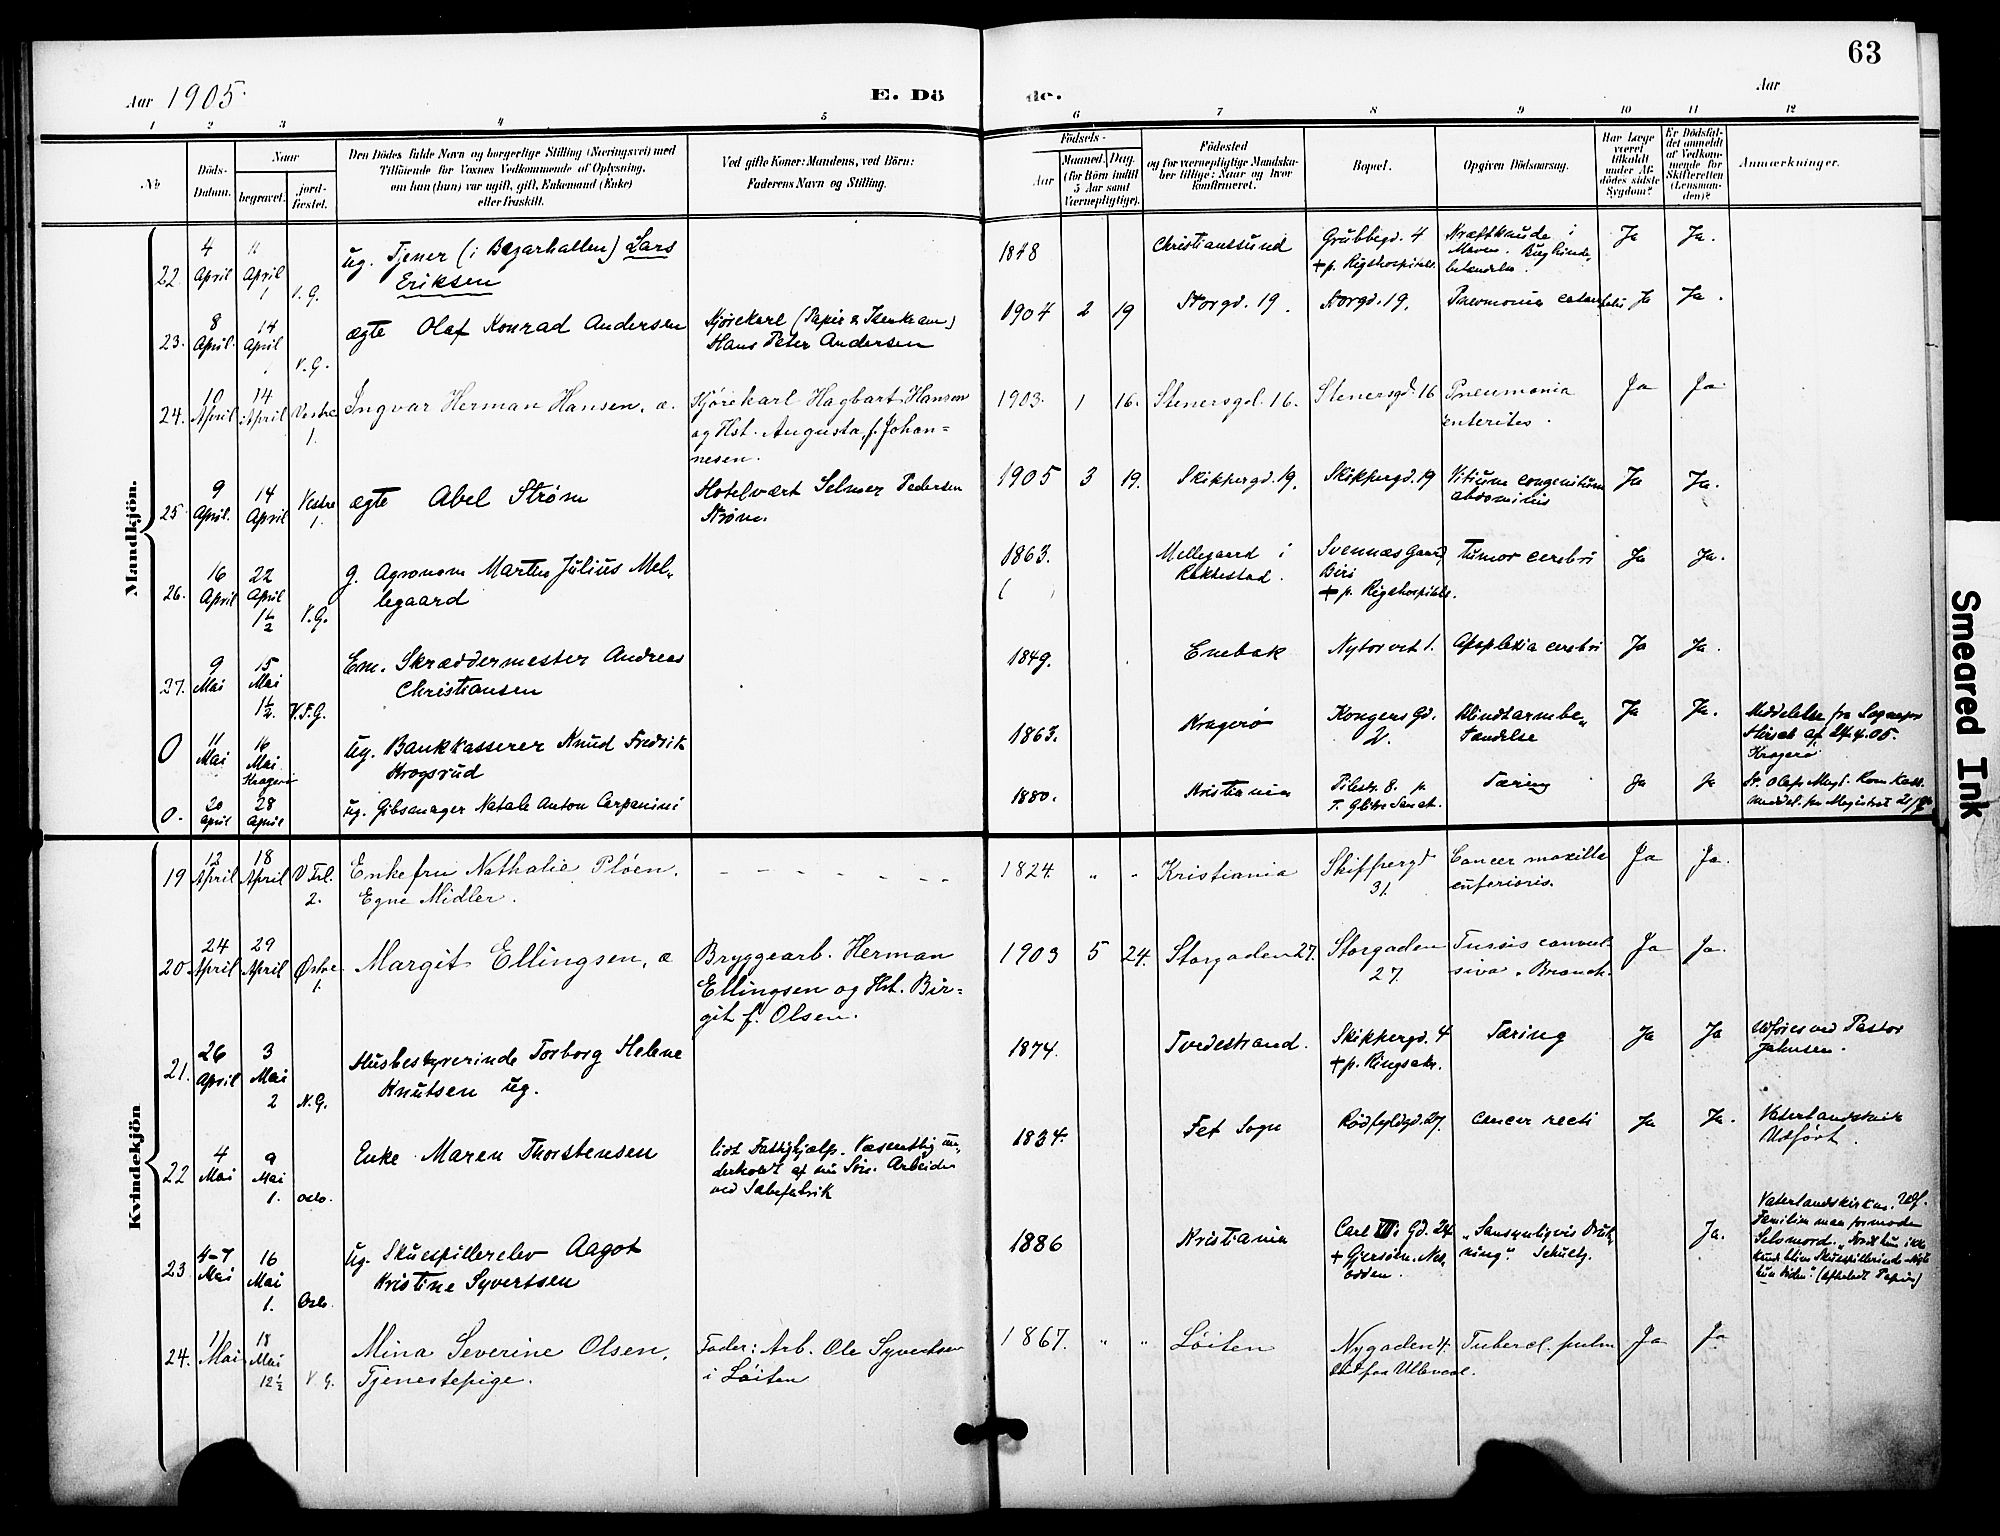 63
Aar 1905.
E. Dö
de.
Aar
1 2 3 4 5 6 7 8 9 10 11 12
No
Döds-Datum.
Naar
begravet.
jord-fæstet.
Den Dödes fulde Navn og borgerlige Stilling (Næringsvei) med
Tilföiende for Voxnes Vedkommende af Oplysning,
om han (hun) var ugift, gift, Enkemand (Enke)
eller fraskilt.
Ved gifte Koner: Mandens, ved Börn:
Faderens Navn og Stilling.
Födsels-
Aar
Maaned. Dag.
(for Börn indtil
5 Aar samt
Værnepligtige).
Födested
og for værnepligtige Mandska-
ber tillige: Naar og hvor
konfirmeret.
Bopæl.
Opgiven Dödsaarsag.
Har Læge
været
tilkaldt
under Af-
dödes sidste
Sygdom?
Er Dödsfal-
det anmeldt
af Vedkom-
mende for
Skifteretten
(Lensman-
den)?
Anmærkninger.
Mandkjön.
22. 4 April 11 April 1 V.G. ug. Tjener (i Bazarhallen) Lars
Eriksen
1848 Christianssund Grubbegd. 4
+ p. Rigshospitalet. Kræftknude i
Maven. Bughinde-
betændelse. Ja Ja.
23. 8 April. 14 April V.G. ægte Olaf Konrad Andersen Kjørekarl
Hans Peter Andersen
1904 2 19 Storgd. 19. Storgd. 19. Pneumonia Ja Ja.
24. 10 April 14 April 1. Vestre Ingvar Herman Hansen, æ. Kjørekarl Hagbart Hansen
og Hst. Augusta, f. Johan=
nesen.
1903. 1 16. Stenersgd. 16. Stenersgd. 16 Pneumonia
enterites. Ja Ja.
25. 9 April. 14 April Vestre 1. ægte Abel Strøm Hotelvært Selmer Pedersen
Strøm.
1905 3 19. Skippergd. 19. Skippergd. 19 Vitium congenitum
abdominis Ja Ja.
26. 16 April 22 April 1½ V.G. g. Agronom Martin Julius Mel-
legaard
1863. Mellegaard i
Rakkestad. Svennæs Gaard,
Biri
+ p. Rigshospitalet. Tumor cerebri Ja Ja.
27. 9 Mai 15 Mai 1½. V.F.G. Em. Skræddermester Andreas
Christiansen
1849. Enebak Nytorvet 1. Apoplexia cerebri Ja Ja.
0 11 Mai 16 Mai Kragerø ug. Bankkasserer Knud Fredrik
Krogsrud
1863. Kragerø Kongens Gd.
2. Blindtarmbe-
tændelse Ja Ja. Meddelelse fra Sognepr.
af 24.4.05.
Kragerø
0. 20 April 28 April ug. Gibsmager Natale Anton Carpanini
1880. Kristiania Pilestr. 8. p.
T. Glitre Sanat. Tæring Ja Ja St. Olafs Kirke
meddel. fra Magistrat
Kvindekjön
19 12 April 18 April V Frl. 2. Enkefru Nathalie Pløen.
Egne Midler.
1824. " " Kristiania Skippergd
31. Cancer maxilla
inferioris. Ja Ja.
20 24 April 29 April Østre 1. Margit Ellingsen, æ Bryggearb. Herman
Ellingsen og Hst. Bir=
git f. Olsen.
1903 5 24. Storgaden 27. Storgaden
27. Tussis convul
siva. Bronch. Ja Ja.
21. 26 April 3 Mai 2 N.G. Husbestyrerinde Torborg Helene
Knutsen ug.
1874. Tvedestrand. Skippergd. 4
+ p. Ringsaker. Tæring Ja Ja Udføres ved Pastor
Jahnsen.
22 4 Mai 9 Mai 1. Oslo. Enke Maren Thorstensen lidt Fattighjælp. Væsentlig un-
derholdt af sin Søn. Arbeider
ved Sæbefabrik
1834. Fet Sogn Rødfyldgd. 27. Cancer recti Ja Ja. Vaterlandskirk
Udført.
23 4-7 Mai 16 Mai 1. Oslo. ug. Skuespillerelev Aagot
Kristine Syvertsen
1886 Kristiania Carl XII: Gd. 24
+ Gjersøen. Nes-
odden. "Sansynligvis Druk-
ning". Schuetz. Ja. Vaterlandskirken. Udf.
Familien maa formode
Selvmord.
24. 11 Mai 18 Mai 12½ V.G. Mina Severine Olsen,
Tjenestepige. Fader: Arb. Ole Syvertsen
i Løiten
1867. " " Løiten Nygaden 4.
død paa Ullevaal. Tubercl. pulm Ja Ja
Smeared Ink